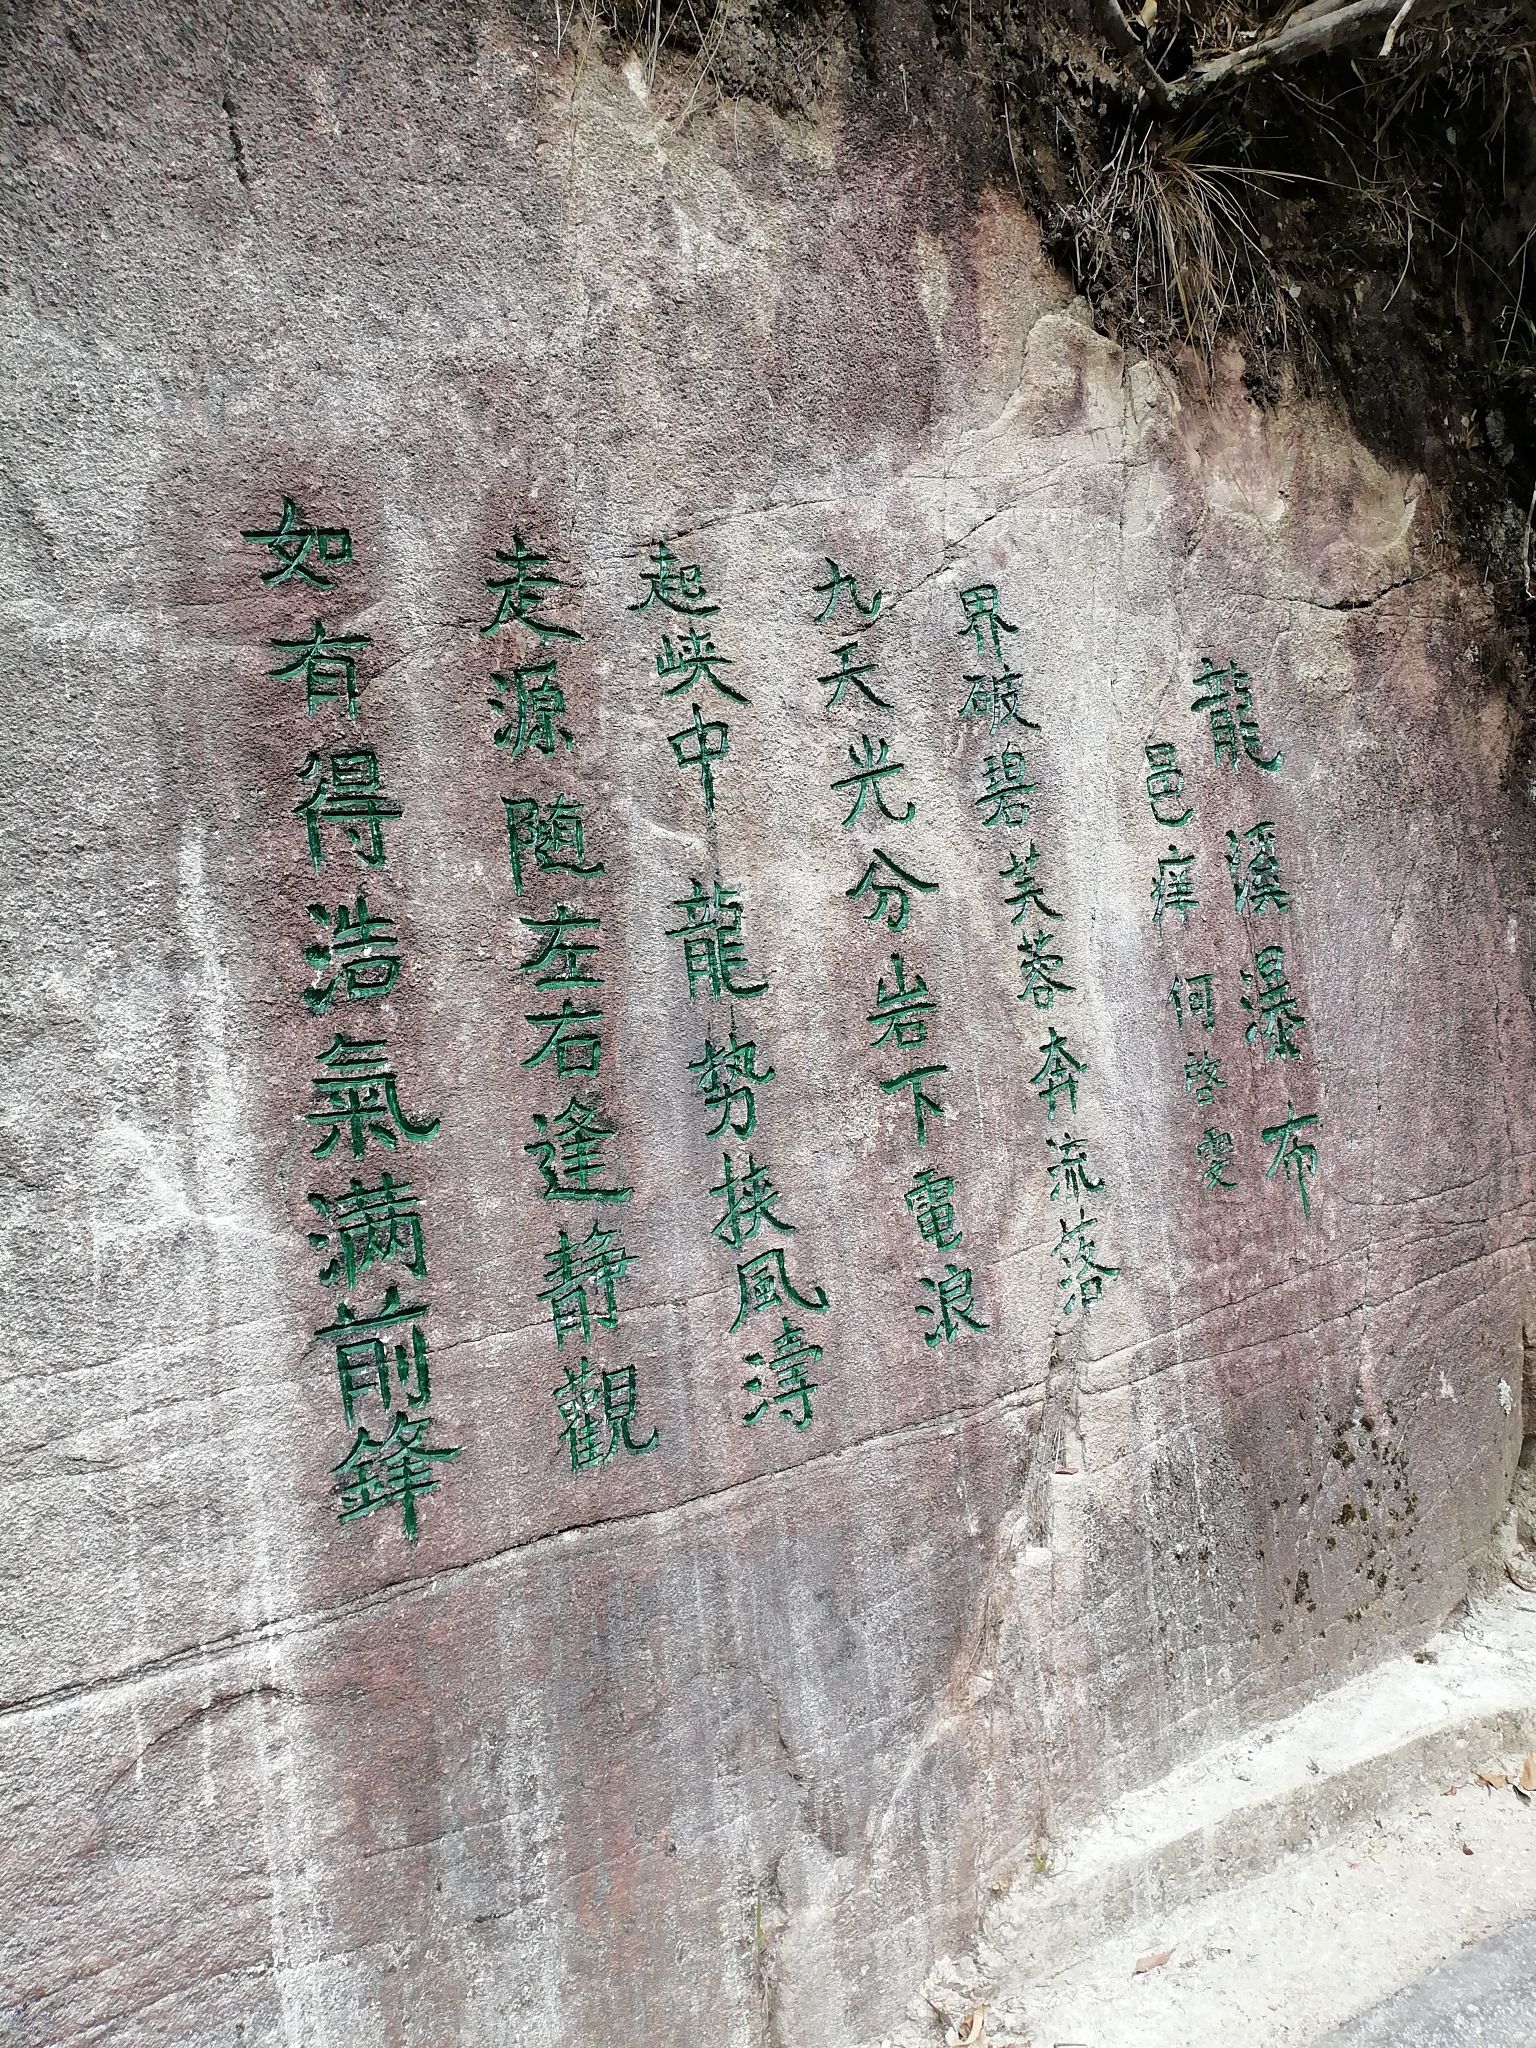 龍溪瀑布
邑庠 何啓雯
界破碧芙蓉奔流落
九天光分岩下電浪
起峽中龍勢挾風濤
走源随左右逢静觀
如有得浩氣满前鋒